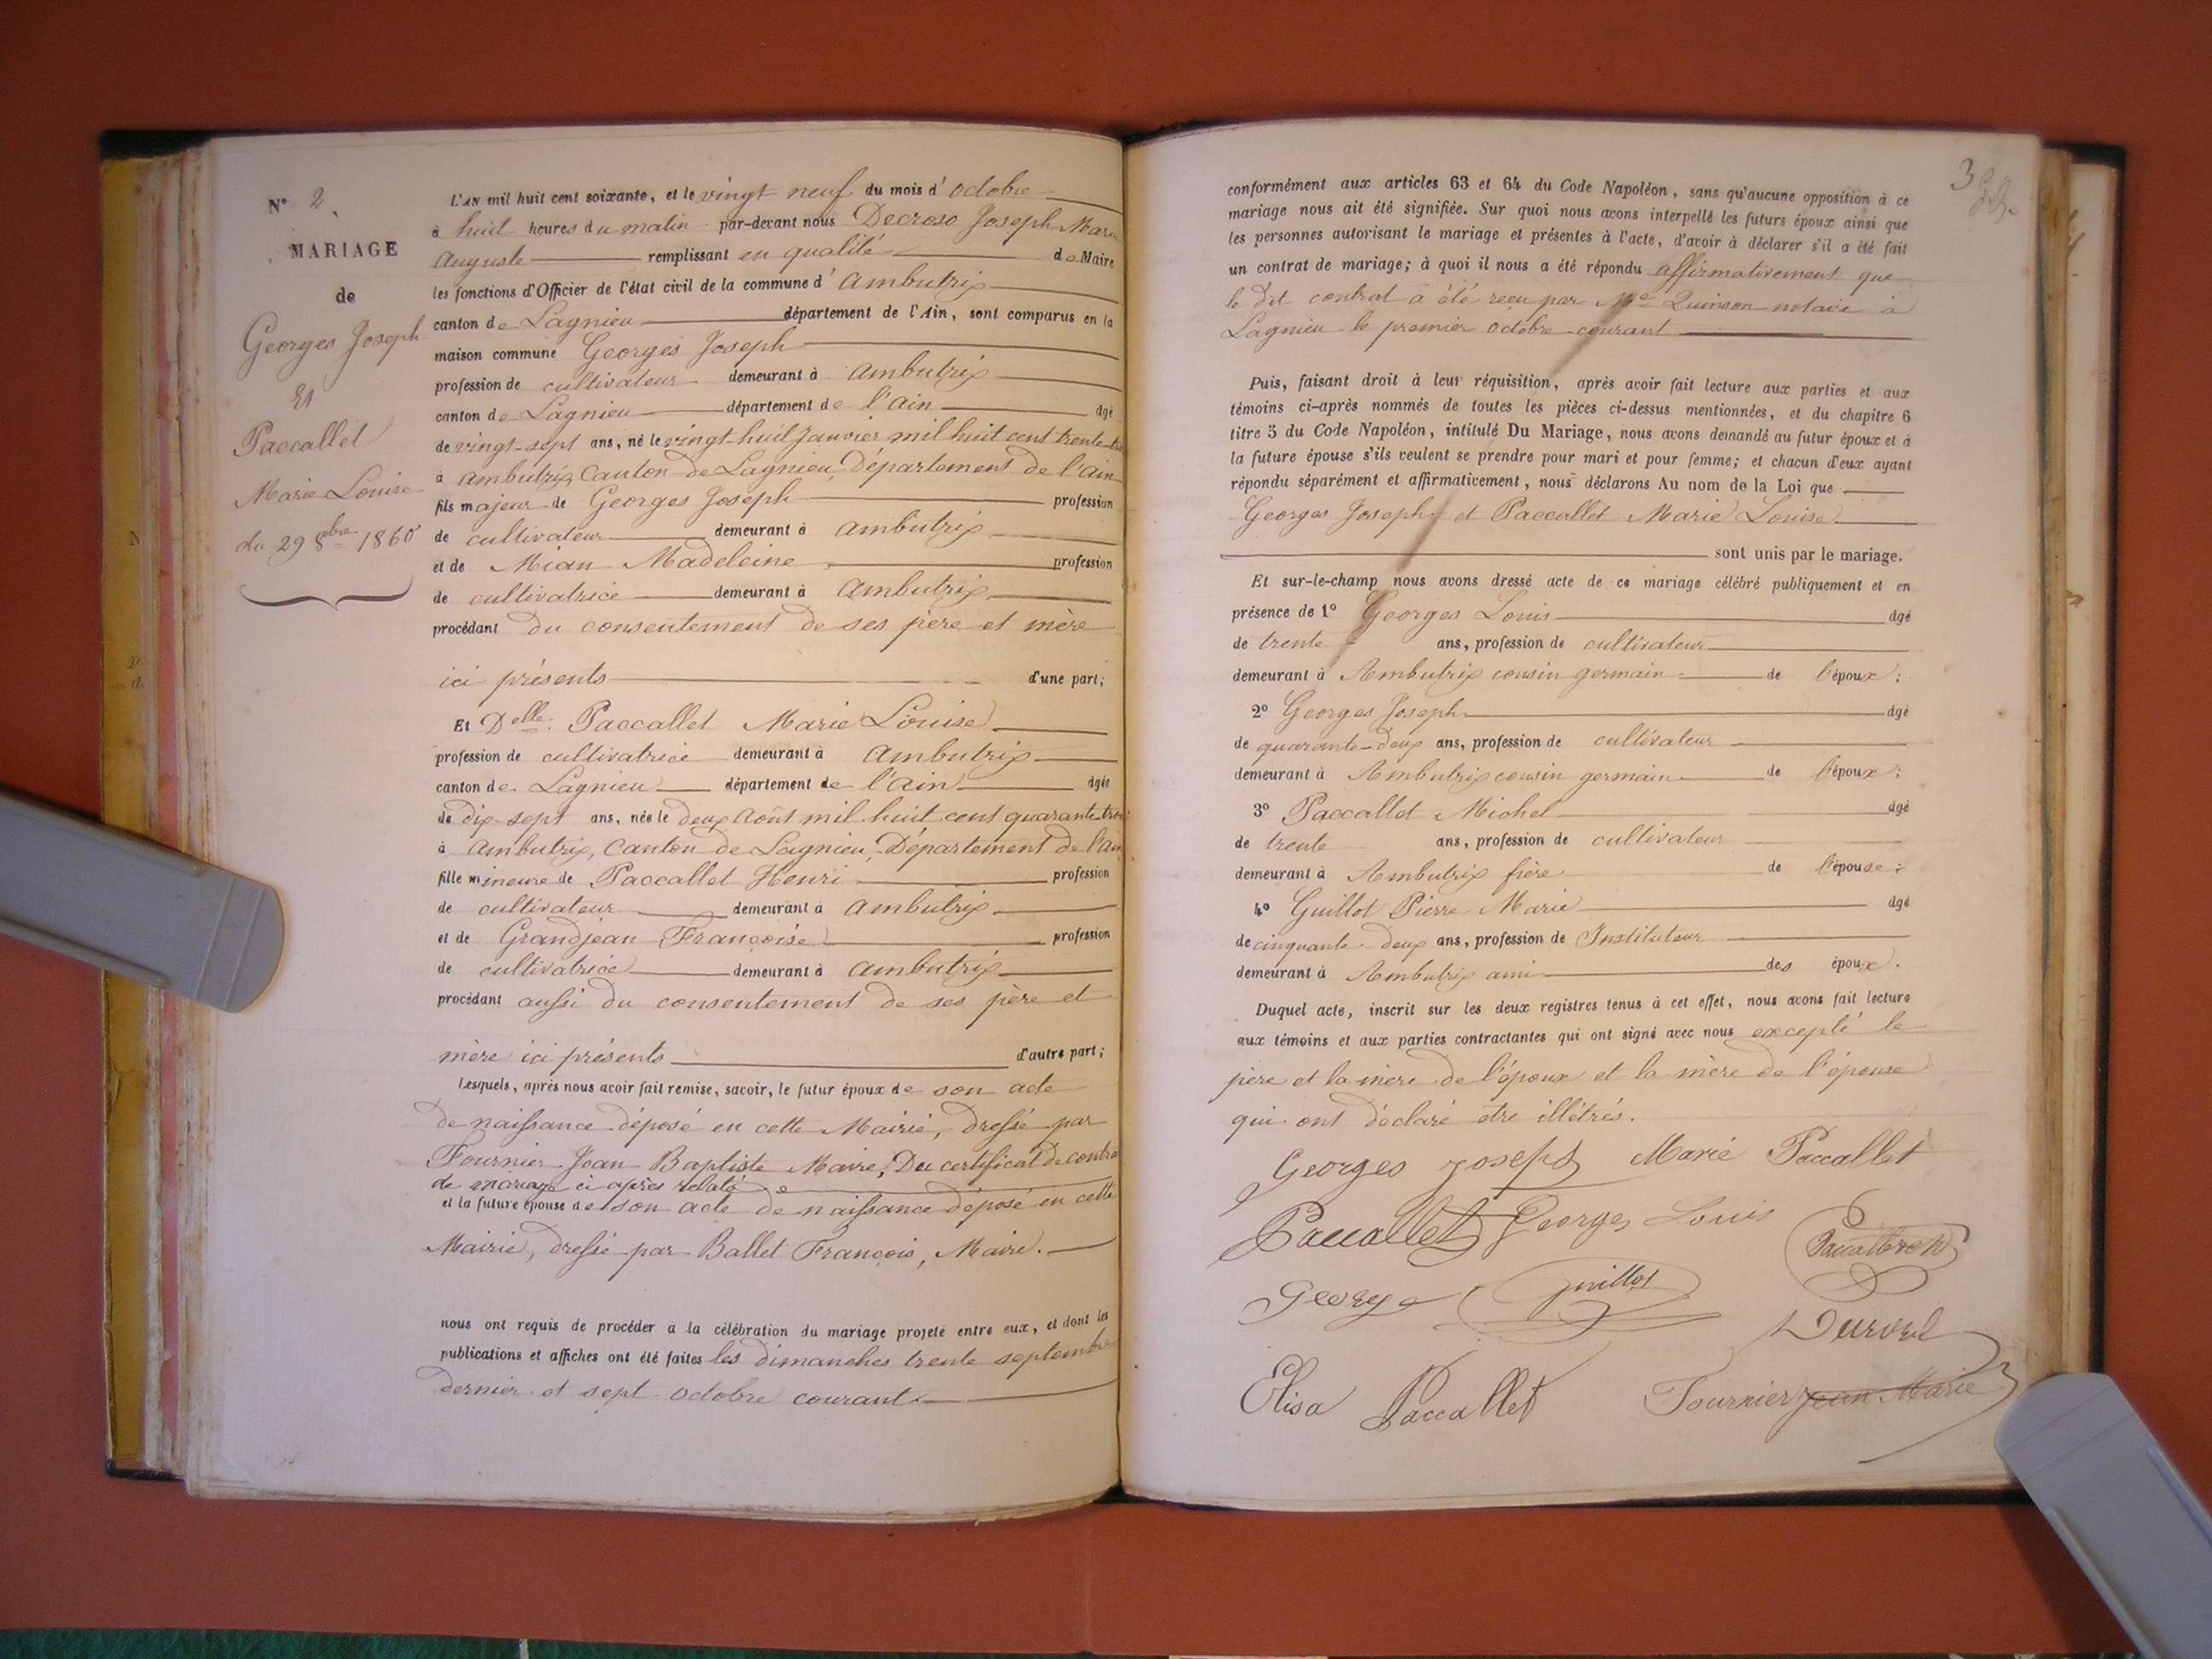 N° 2.
MARIAGE
de
Georges Joseph
Et
Paccallet
Marie Louise
du 29 8bre 1860
L'AN mil huit cent soixante, et le vingt neuf du mois d'octobre
à huit heures du matin par-devant nous Decroso Joseph Marie
Auguste remplissant en qualité de Maire
les fonctions d'Officier de l'état civil de la commune d'Ambutrix
canton de Lagnieu département de l'Ain, sont comparus en la
maison commune Georges Joseph
profession de cultivateur demeurant à Ambutrix
canton de Lagnieu département de l'ain âgé
de vingt-sept ans, né le vingt-huit Janvier mil huit cent trente-trois
à Ambutrix Canton de Lagnieu, Département de l'Ain
fils majeur de Georges Joseph profession
de cultivateur demeurant à Ambutrix
et de Mian Madeleine profession
de cultivatrice demeurant à Ambutrix
procédant du consentement de ses père et mère
ici présents d'une part;
Et Delle Paccallet Marie Louise
profession de cultivatrice demeurant à Ambutrix
canton de Lagnieu département de l'ain âgée
de dix-sept ans, née le deux Août mil huit cent quarante-trois
à Ambutrix, Canton de Lagnieu, Département de l'ain
fille mineure de Paccallet Henri profession
de cultivateur demeurant à Ambutrix
et de Grandjean Françoise profession
de cultivatrice demeurant à Ambutrix
procédant aussi du consentement de ses père et
mère ici présents d'autre part;
Lesquels, après nous avoir fait remise, savoir, le futur époux de son acte
de naissance déposé en cette Mairie, dressé par
Fournier Jean Baptiste Maire, Du certificat de contrat
de mariage ci après relaté
et la future épouse de son acte de naissance déposé en cette
Mairie, dressé par Ballet François, Maire.
nous ont requis de procéder à la célébration du mariage projeté entre eux, et dont les
publications et affiches ont été faites les dimanches trente septembre
dernier et sept octobre courant
3
conformément aux articles 63 et 64 du Code Napoléon, sans qu'aucune opposition à ce
mariage nous ait été signifiée. Sur quoi nous avons interpellé les futurs époux ainsi que
les personnes autorisant le mariage et présentes à l'acte, d'avoir à déclarer s'il a été fait
un contrat de mariage; à quoi il nous a été répondu affirmativement que
le dit contrat a été reçu par Me Quinson notaire à
Lagnieu le premier octobre courant
Puis, faisant droit à leur réquisition, après avoir fait lecture aux parties et aux
témoins ci-après nommés de toutes les pièces ci-dessus mentionnées, et du chapitre 6
titre 5 du Code Napoléon, intitulé Du Mariage, nous avons demandé au futur époux et à
la future épouse s'ils veulent se prendre pour mari et pour femme; et chacun d'eux ayant
répondu séparément et affirmativement, nous déclarons Au nom de la Loi que
Georges Joseph et Paccallet Marie Louise
sont unis par le mariage.
Et sur-le-champ nous avons dressé acte de ce mariage célébré publiquement et en
présence de 1° Georges Louis âgé
de trente ans, profession de cultivateur
demeurant à Ambutrix cousin germain de l'époux;
2° Georges Joseph âgé
de quarante-deux ans, profession de cultivateur
demeurant à Ambutrix cousin germain de l'époux;
3° Paccallet Michel âgé
de trente ans, profession de cultivateur
demeurant à Ambutrix frère de l'épouse;
4° Guillot Pierre Marie âgé
de cinquante deux ans, profession de Instituteur
demeurant à Ambutrix ami des époux.
Duquel acte, inscrit sur les deux registres tenus à cet effet, nous avons fait lecture
aux témoins et aux parties contractantes qui ont signé avec nous excepté le
père et la mère de l'époux et la mère de l'épouse
qui ont déclaré etre illétrés.
Georges Joseph Marie Paccallet
Paccallet Georges Louis
George Guillot
Elisa Paccallet Fournier Jean Marie